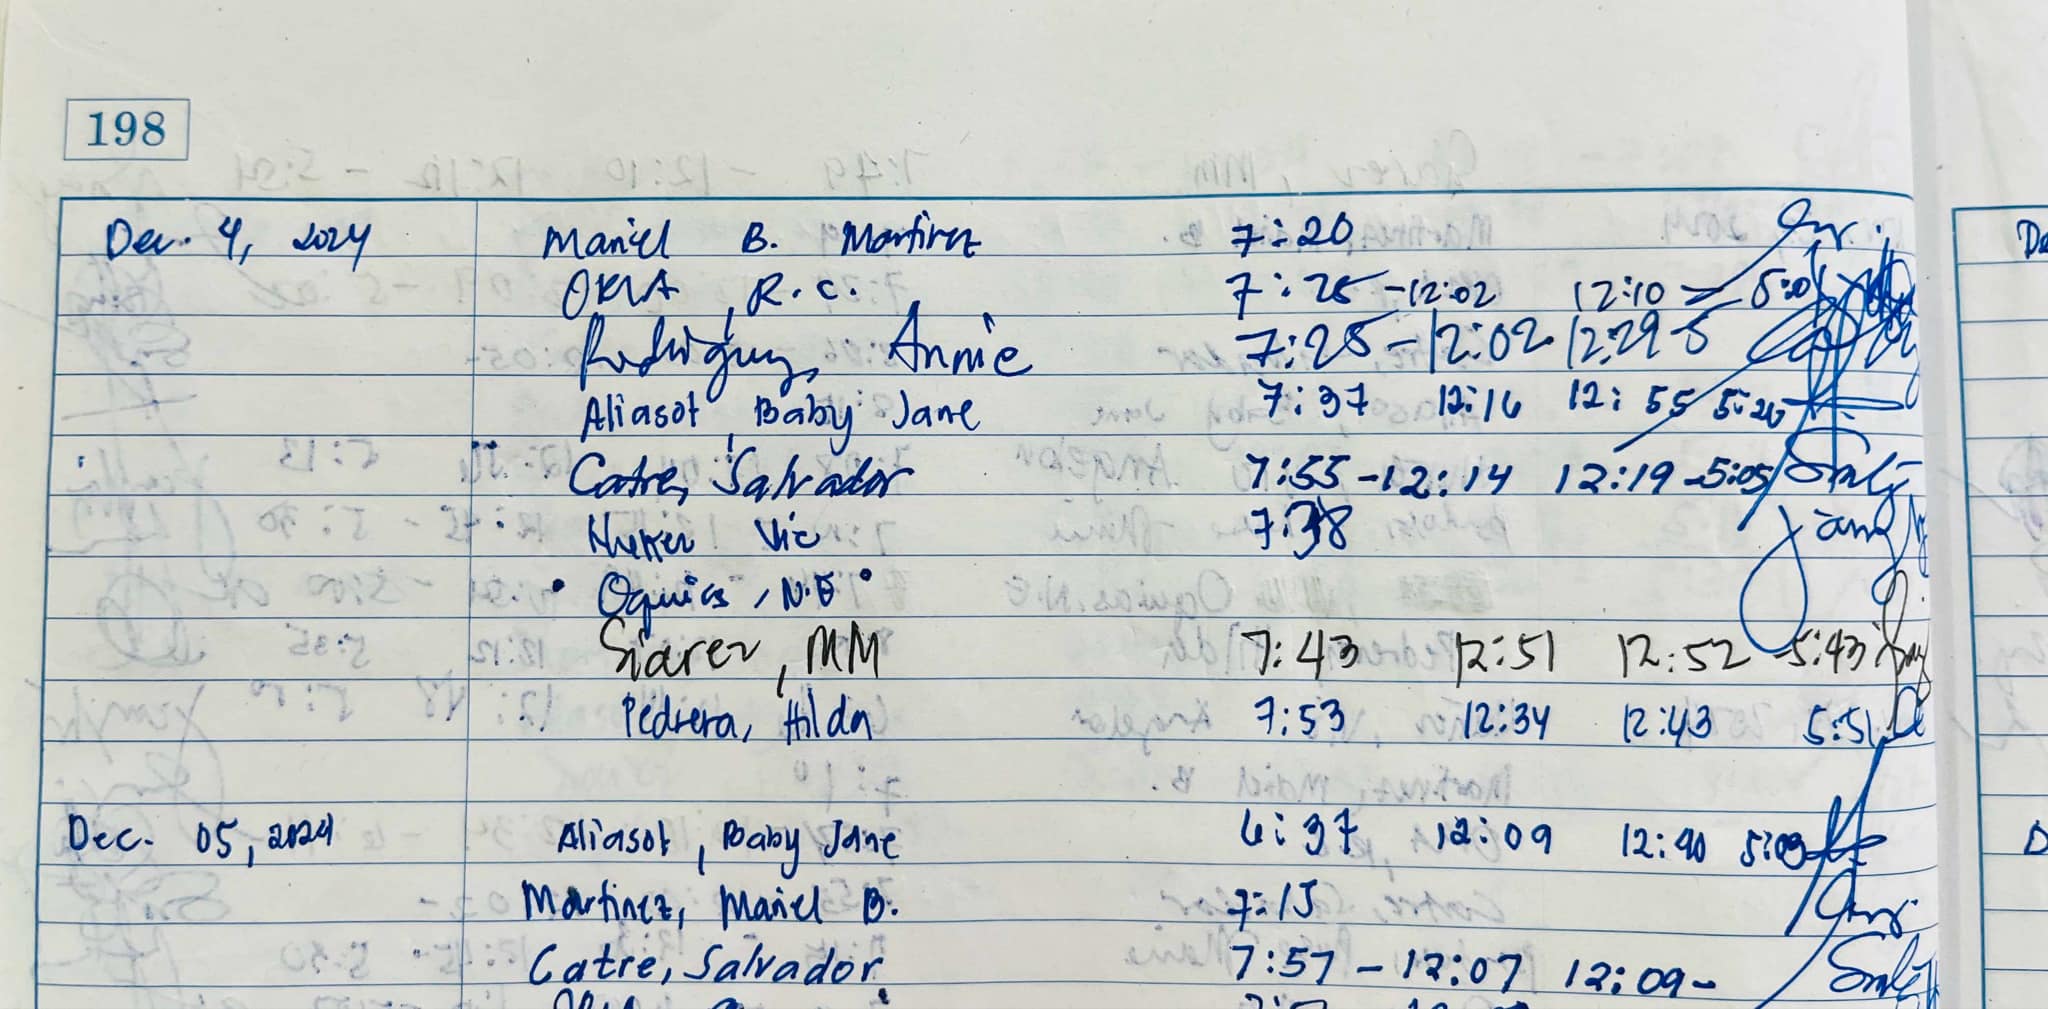 198
Dec. 4, 2024 Mariel B. Martinez 7:20
R.C. 7:25 -12:02 12:10 - 5:0
Rodriguez, Annie 7:25 - 12:02 12:29 5
Aliasot, Baby Jane 7:37 12:16 12:55 5:20
Catre, Salvador 7:55 -12:14 12:19 -5:05
Vic 7:38
Oquias, N.E
Siarez, MM 7:43 12:51 12:52 5:43
Pedrera, Hilda 7:53 12:34 12:43 5:51
Dec. 05, 2024 Aliasot, Baby Jane 6:37 12:09 12:40 5:03
Martinez, Mariel B. 7:15
Catre, Salvador 7:57 - 12:07 12:09-